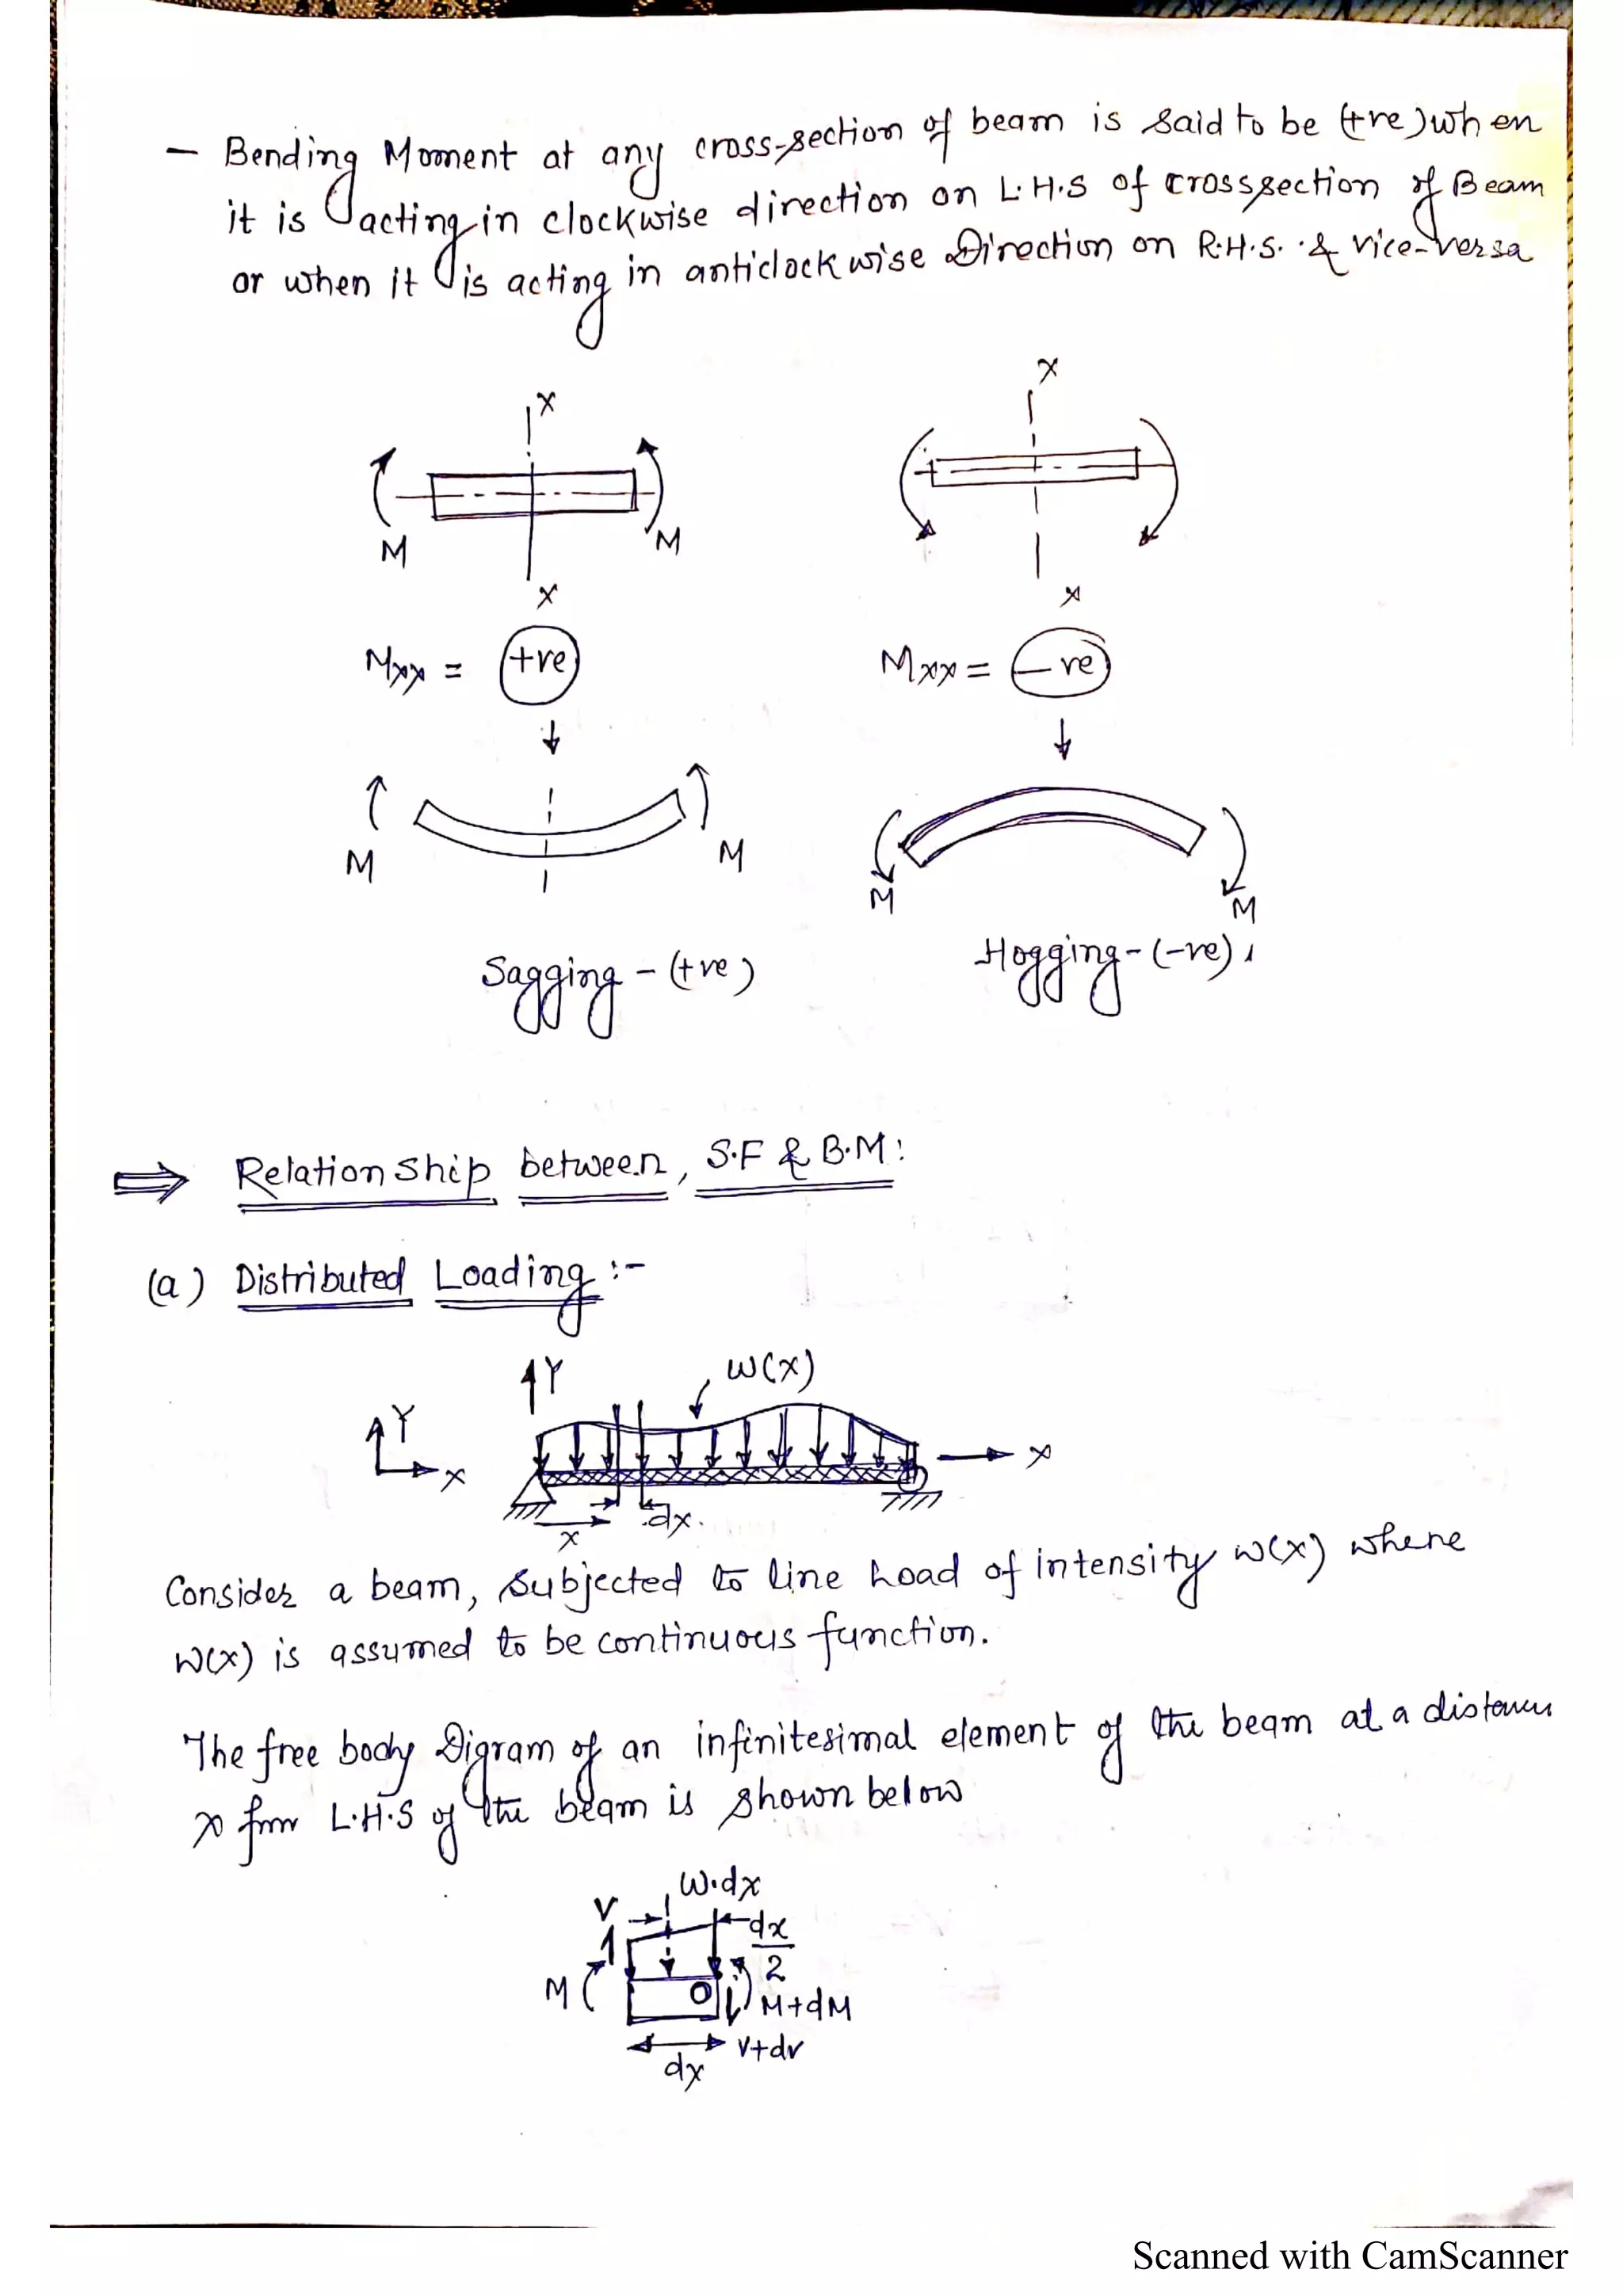 - Bending Moment at any cross-section of beam is said to be (+ve) when
it is acting in clockwise direction on L.H.S of crosssection of Beam
or when it is acting in anticlockwise Direction on R.H.S. & vice-versa
x x
M M
x x
Mxx = +ve Mxx = -ve
M M M M
Sagging - (+ve) Hogging - (-ve)
⇒ Relation Ship between, S.F & B.M:
(a) Distributed Loading :-
Y w(x)
Y
x x
x dx.
Consider a beam, subjected to line Load of intensity w(x) where
w(x) is assumed to be continuous function.
The free body Digram of an infinitesimal element of the beam at a distance
x from L.H.S of the beam is shown below
W.dx
V dx/2
M O M+dM
V+dv
dx
Scanned with CamScanner